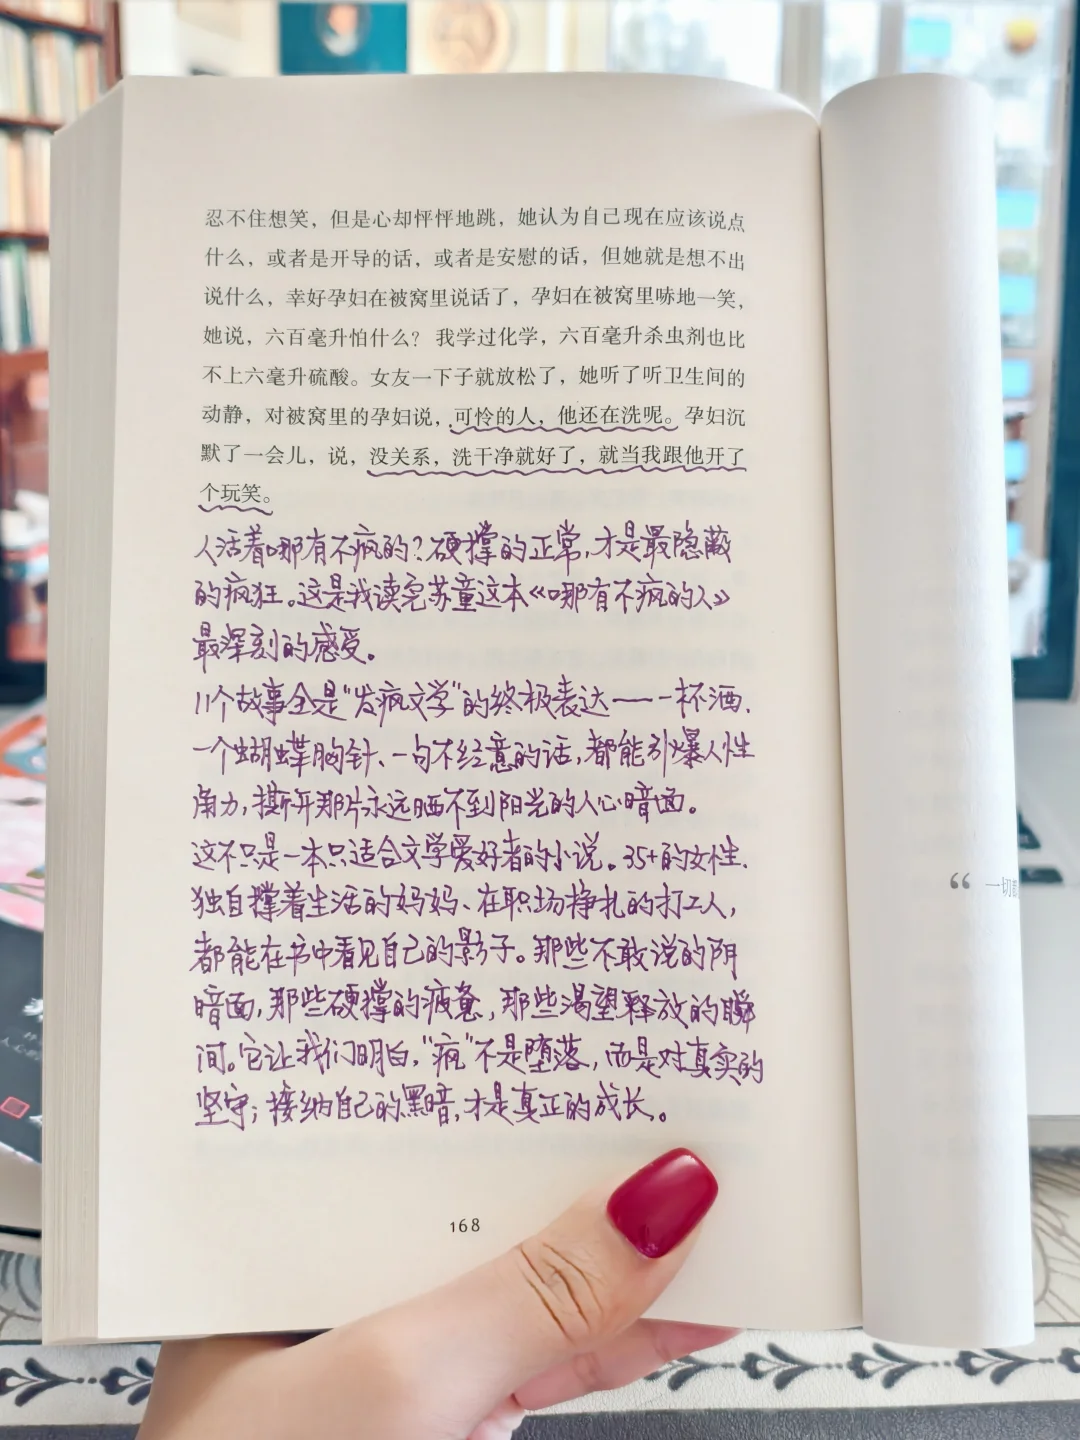 忍不住想笑，但是心却怦怦地跳，她认为自己现在应该说点
什么，或者是开导的话，或者是安慰的话，但她就是想不出
说什么，幸好孕妇在被窝里说话了，孕妇在被窝里哧地一笑，
她说，六百毫升怕什么？我学过化学，六百毫升杀虫剂也比
不上六毫升硫酸。女友一下子就放松了，她听了听卫生间的
动静，对被窝里的孕妇说，可怜的人，他还在洗呢。孕妇沉
默了一会儿，说，没关系，洗干净就好了，就当我跟他开了
个玩笑。
人活着哪有不疯的？硬撑的正常，才是最隐蔽
的疯狂。这是我读完苏童这本《哪有不疯的人》
最深刻的感受。
11个故事全是“发疯文学”的终极表达——一杯酒、
一个蝴蝶胸针、一句不经意的话，都能引爆人性
角力，撕开那片永远晒不到阳光的人心暗面。
这不只是一本只适合文学爱好者的小说。35+的女性、
独自撑着生活的妈妈、在职场挣扎的打工人，
都能在书中看见自己的影子。那些不敢说的阴
暗面，那些硬撑的疲惫，那些渴望释放的瞬
间。它让我们明白，“疯”不是堕落，而是对真实的
坚守；接纳自己的黑暗，才是真正的成长。
168
“ 一切